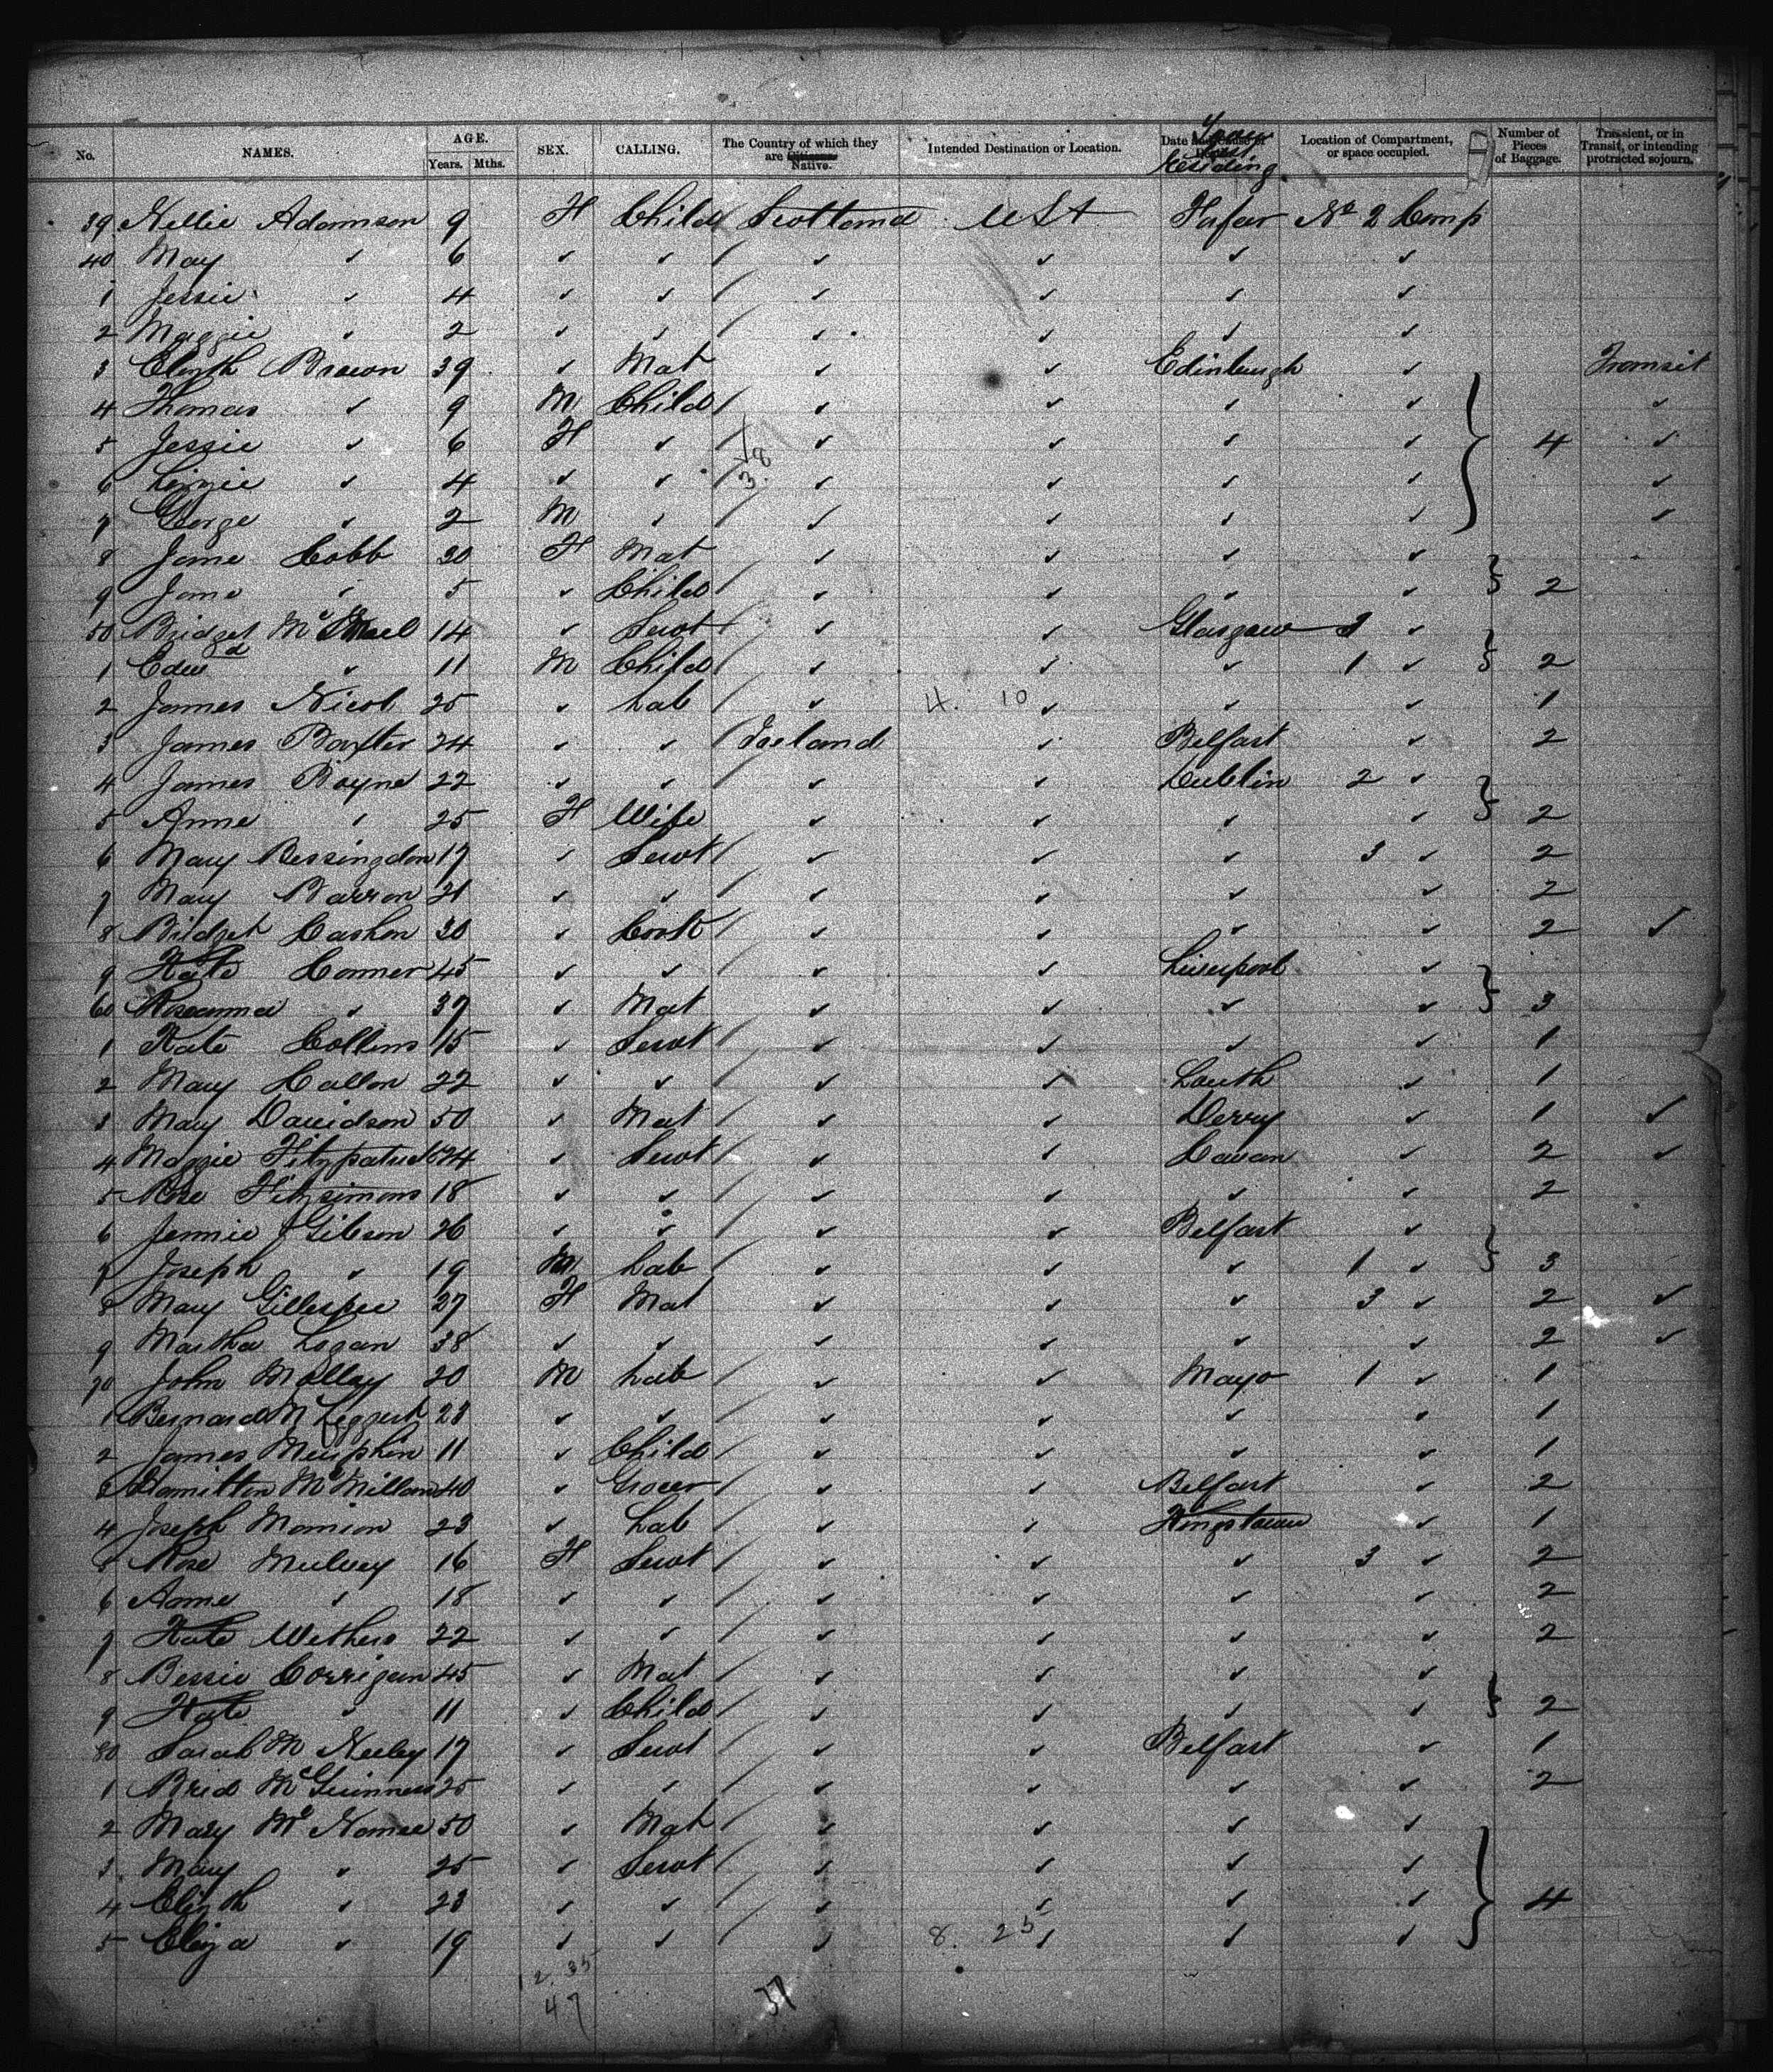 No. NAMES. AGE. Years. Mths. SEX. CALLING. The Country of which they are Citizens Native. Intended Destination or Location. Date and Cause of Town Residing. Location of Compartment, or space occupied. Number of Pieces of Baggage. Transient, or in Transit, or intending protracted sojourn.
39 Nellie Adamson 9 F Child Scotland USt Forfar No 2 Comp
40 May " 6 " " " " " "
1 Jessie " 4 " " " " " "
2 Maggie " 2 " " " " " "
3 Elizth Brown 39 " Mat " " Edinburgh " Transit
4 Thomas " 9 M Child " " " " "
5 Jessie " 6 F " " " " " 4 "
6 Lizzie " 4 " " " " " " "
7 George " 2 M " " " " " "
8 Jane Cobb 30 F Mat " " " "
9 Jane " 5 " Child " " " " 2
50 Bridget 14 " Servt " " Glasgow 3 "
1 Edwd " 11 M Child " " " 1 " 2
2 James Nicol 25 " Lab " 4. 10 " " " 1
3 James Baxter 24 " " Ireland " Belfast " 2
4 James Boyne 22 " " " " Dublin 2 "
5 Anne " 25 F Wife " " " " 2
6 Mary Bessingdon 17 " Servt " " " 3 " 2
7 Mary Barron 21 " " " " " " 2
8 Bridget Cashon 30 " Cook " " " " 2 "
9 Kate Conner 45 " " " " Liverpool "
60 Roseanna " 37 " Mat " " " " 3
1 Kate Collins 15 " Servt " " " " 1
2 Mary Callon 22 " " " " Louth " 1
3 Mary Davidson 50 " Mat " " Derry " 1 "
4 Maggie Fitzpatrick 24 " Servt " " Cavan " 2 "
5 Rose Fitzsimons 18 " " " " " " 2
6 Jennie Gibson 26 " " " " Belfast "
7 Joseph " 19 M Lab " " " 1 " 3
8 Mary Gillespee 27 F Mat " " " 3 " 2 "
9 Martha Logan 38 " " " " " " 2 "
70 John Mollay 20 M Lab " " Mayo 1 " 1
1 Bernard 23 " " " " " " 1
2 James Meuphin 11 " Child " " " " 1
3 Hamilton McMillan 40 " Grocer " " Belfast " 2
4 Joseph Mannion 23 " Lab " " Kingstown " 1
5 Rose Mulvey 16 F Servt " " " 3 " 2
6 Anne " 18 " " " " " " 2
7 Kate Wethers 22 " " " " " " 2
8 Bessie Corrigan 45 " Mat " " " "
9 Kate " 11 " Child " " " " 2
80 Sarah McNeeley 17 " Servt " " Belfast " 1
1 Brid McGuinness 25 " " " " " " 2
2 Mary McNamee 50 " Mat " " " "
3 Mary " 25 " Servt " " " "
4 Elizth " 23 " " " " " " 4
5 Eliza " 19 " " " 8. 25 " " "
12. 35
47 37